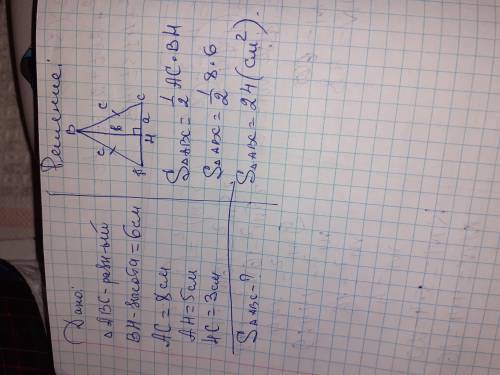 Дано:
△ABC - равн-ый
BH - высота = 6 см
AC = 8 см
AH = 5 см
HC = 3 см
S△ABC - ?
Решение:
B
c c
b
H a C
S△ABC = 1/2 AC · BH
S△ABC = 1/2 8 · 6
S△ABC = 24 (см²).